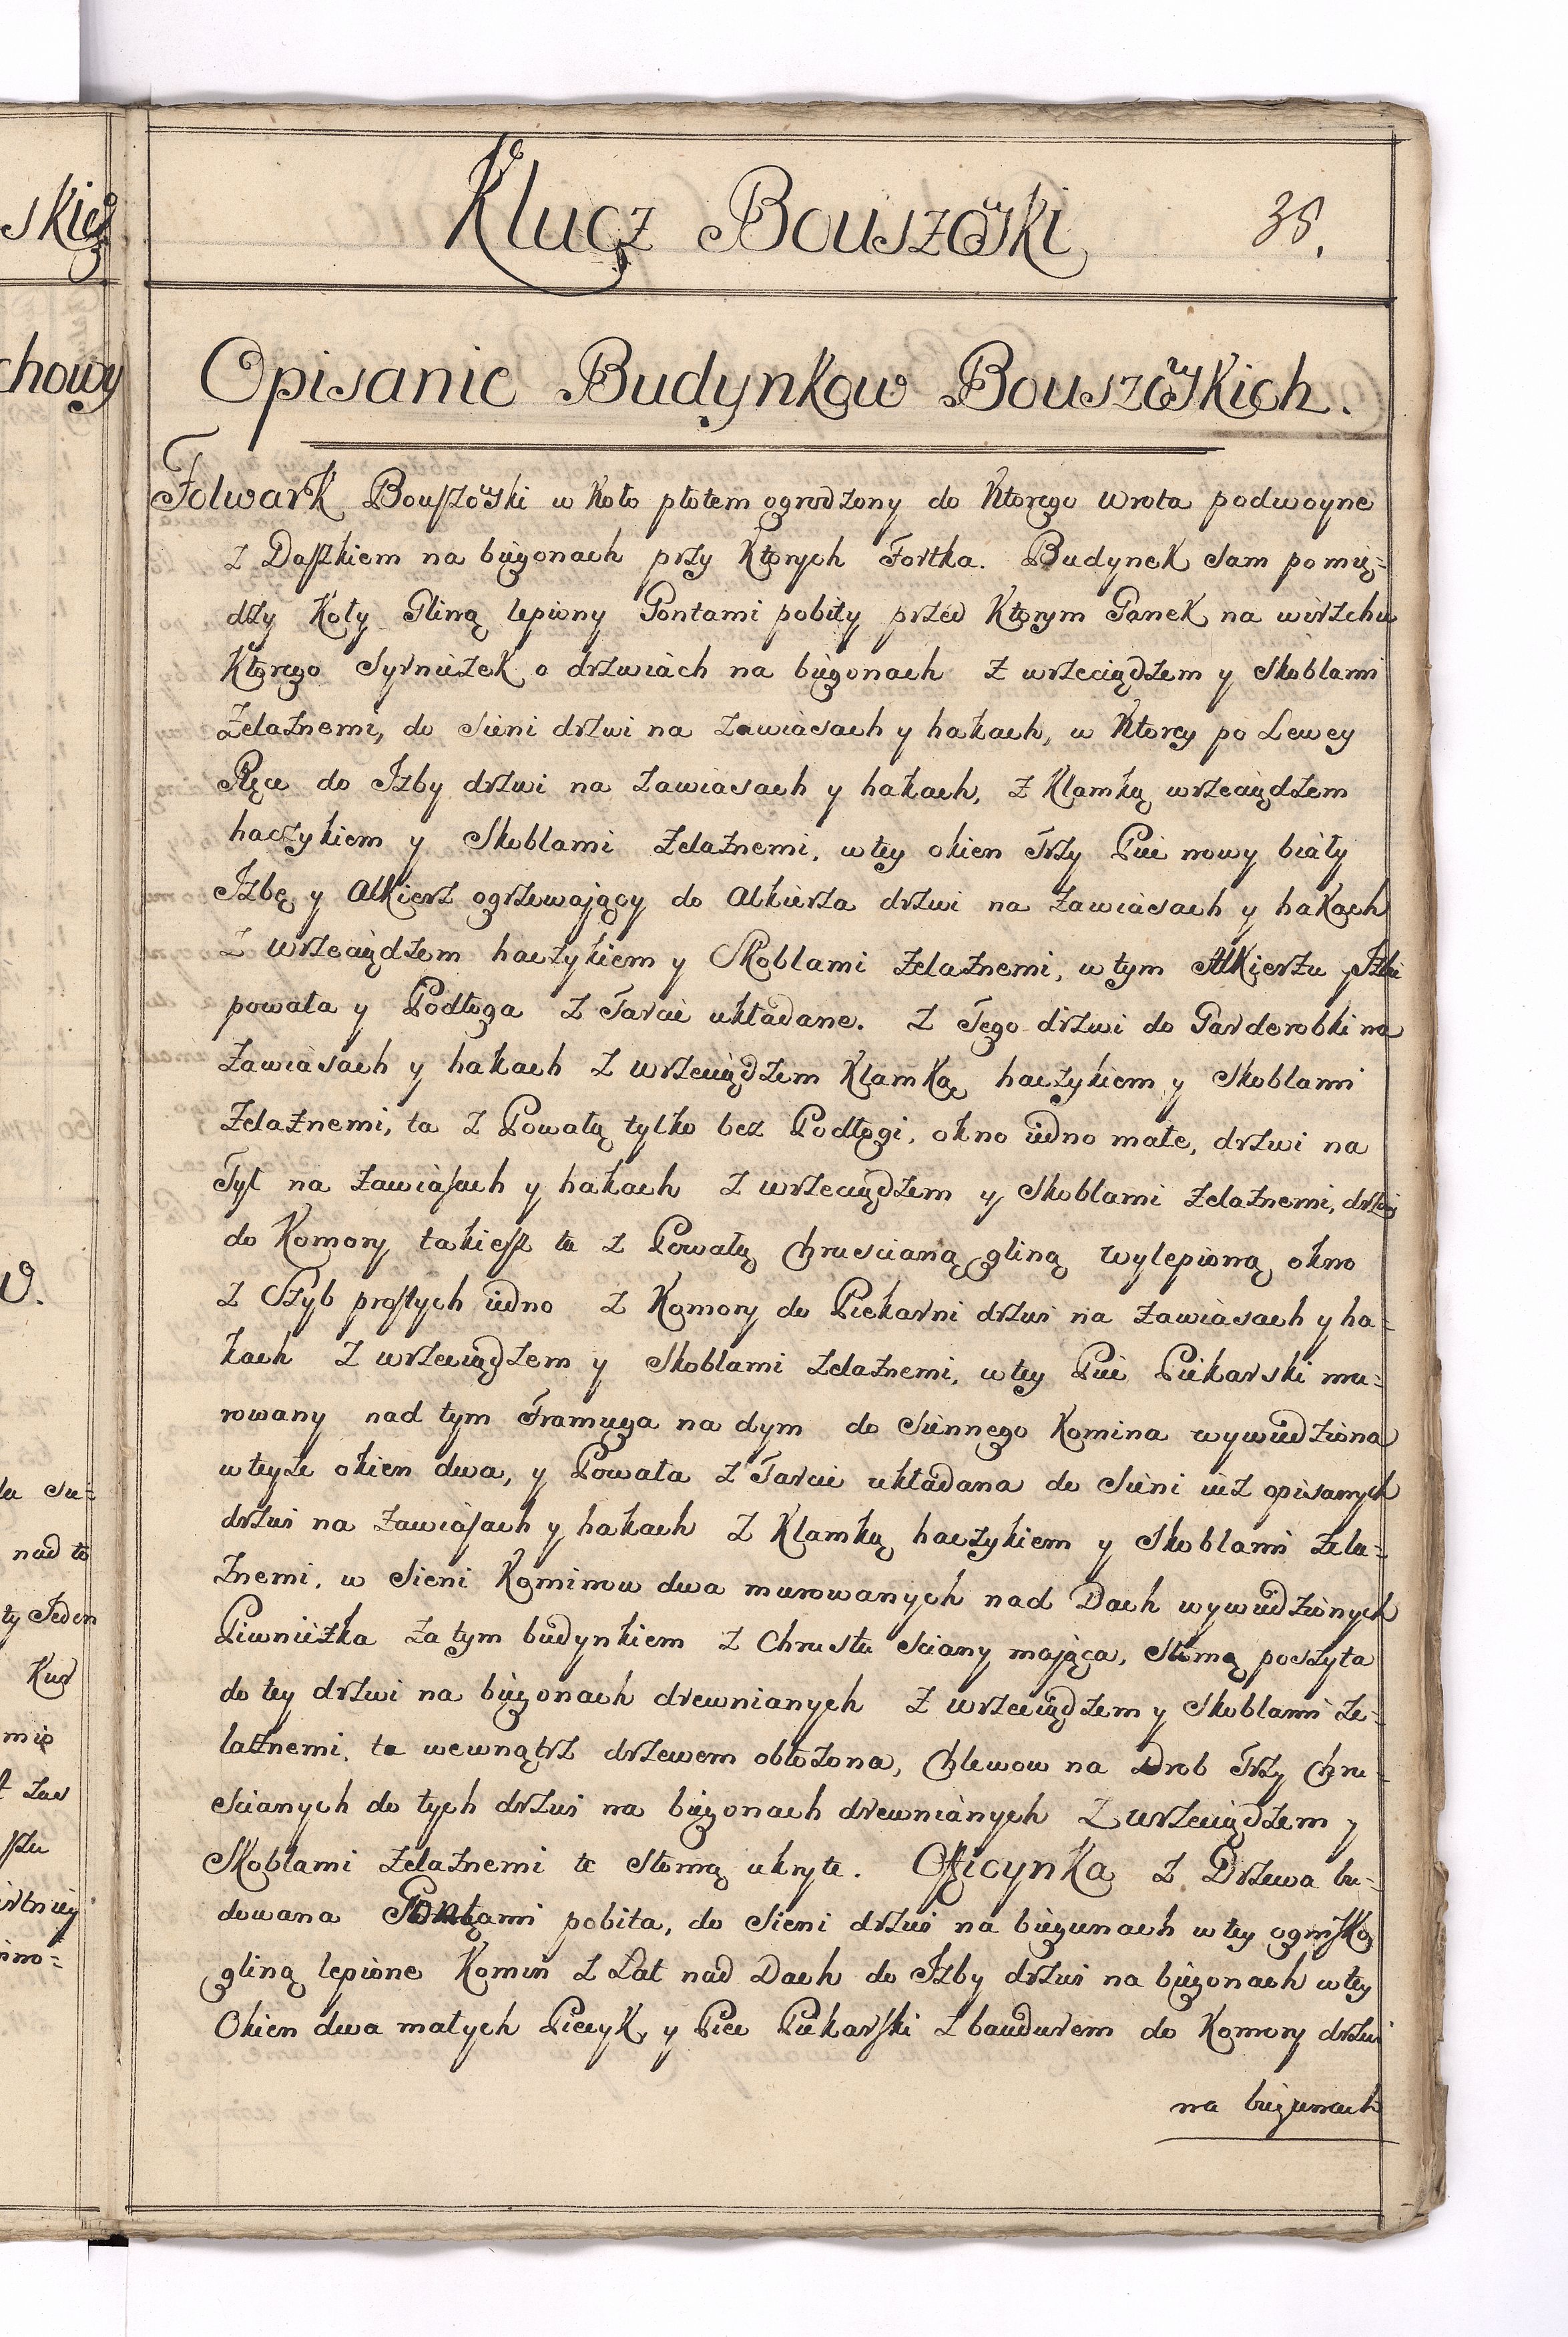 Klucz Bouszowski
38.
Opisanie Budynkow Bouszowskich.
Folwark Bouszowski w Koło płotem ogrodzony do Ktorego wrota podwoyne
z Daszkiem na biegonach przy Ktorych Fortka. Budynek sam pomię=
dzy Koły Gliną lepiony Gontami pobity przed Ktorym Ganek na wierzchu
Ktorego Syrniczek o drzwiach na biegonach z wrzeciądzem y Skoblami
Żelaznemi, do Sieni drzwi na zawiasach y hakach, w Ktorey po Lewey
Ręce do Izby drzwi na zawiasach y hakach, z Klamką wrzeciądzem
haczykiem y Skoblami żelaznemi, w tey okien Trzy Piec nowy biały
Izbę y Alkierz ogrzewający do Alkierza drzwi na zawiasach y hakach
z wrzeciądzem haczykiem y Skoblami żelaznemi, w tym Alkierzu y Izbie
powała y Podłoga z Tarcic układane. z Tego drzwi do Garderobki na
zawiasach y hakach z wrzeciądzem Klamką haczykiem y Skoblami
Żelaznemi, ta z Powałą tylko bez Podłogi, okno iedno małe, drzwi na
Tył na zawiasach y hakach z wrzeciądzem y Skoblami żelaznemi, drzwi
do Komory takiesz ta z Powałą chruscianą gliną wylepioną okno
z Szyb prostych iedno z Komory do Piekarni drzwi na zawiasach y ha=
kach z wrzeciądzem y Skoblami żelaznemi, w tey Piec Piekarski mu=
rowany nad tym Framuga na dym do Siennego Komina wywiedziona
w teyże okien dwa, y Powała z Tarcic układana do Sieni iuż opisanych
drzwi na zawiasach y hakach z Klamką haczykiem y Skoblami żela=
znemi, w Sieni Kominow dwa murowanych nad Dach wywiedzionych
Piwniczka za tym budynkiem z Chrustu Sciany mająca, Słomą poszyta
do tey drzwi na biegonach drewnianych z wrzeciądzem y Skoblami że=
laznemi, ta wewnątrz drzewem obłożona, Chlewow na Drob Trzy Chru=
scianych do tych drzwi na biegonach drewnianych z wrzeciądzem y
Skoblami żelaznemi te Słomą ukryte. Oficynka z Drzewa bu=
dowana Gontami pobita, do Sieni drzwi na biegunach w tey ognisko
gliną lepione Komin z Łat nad Dach do Izby drzwi na biegonach w tey
Okien dwa małych Piecyk y Piec Piekarski z baudurem do Komory drzwi
na biegunach
skiey
chowy
w.
nad to
ty Jeden
Kur